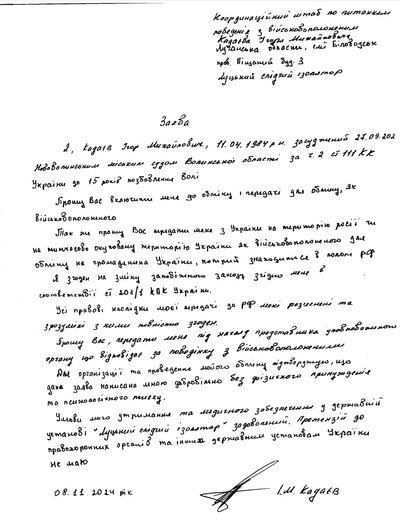 Координаційний штаб по питанням
поведінія з військовополоненим
Кадаєва Ігоря Михайловича
Луганська область, смт Біловодськ
пров. Піщаний буд. 3
Луцький слідчий ізолятор
Заява
Я, Кадаєв Ігор Михайлович, 11.04.1984 р.н. засуджений 27.09.202
Нововолинським міським судом Волинської області за ч. 2 ст 111 КК
України до 15 років позбавлення волі
Прошу Вас включити мене до обміну і передачі для обміну, як
військовополоненого
Так же прошу Вас передати мене з України на територію росії чи
на тимчасово окуповану територію України як військовополоненого для
обміну на громадянина України, котрий знаходиться в полоні рф
Я згоден на зміну запобіжного заходу згідно мене в
соответствії ст 201/1 КПК України.
Усі правові наслідки моєї передачі до РФ мені роз'яснені та
зрозумілі з ними повністю згоден.
Прошу Вас, передати мене під нагляд представника уповноваженого
органу що відповідає за поведінку з військовополоненими
Для організації та проведення мойого обміну підтверджую, що
дана заява написана мною добровільно без фізичного принуждения
та психологічного тиску.
Умови мого утримання та медичного забезпечення у державній
установі "Луцький слідчий ізолятор" задоволений. Претензій до
правоохоронних органів та інших державним установам України
не маю
08.11.2024 рік
І.М. Кадаєв